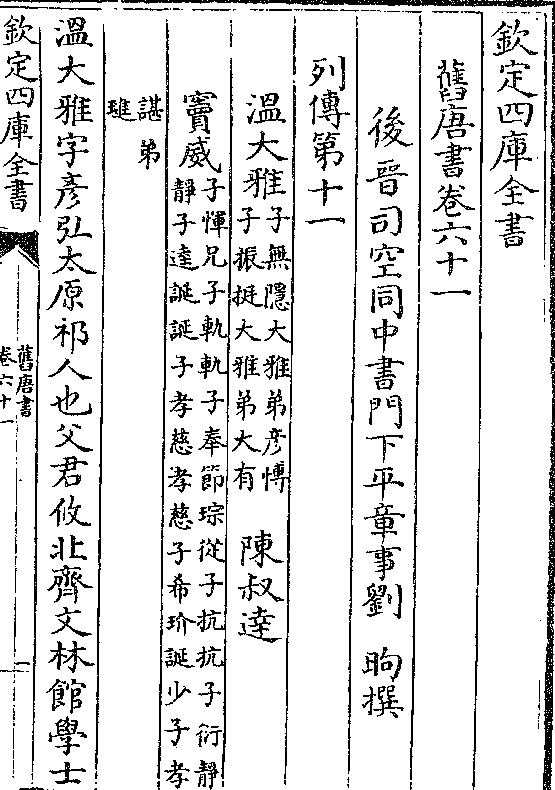 欽定四庫全書
舊唐書卷六十一
後晉司空同中書門下平章事劉 昫撰
列傳第十一
溫大雅子無隱大雅弟彥愽
子振挺大雅弟大有 陳叔達
竇威子惲兄子軌軌子奉節琮從子抗抗子衍靜
靜子逵誕誕子孝慈孝慈子希玠誕少子孝
諶弟
璡
溫大雅字彥弘太原祁人也父君攸北齊文林館學士
欽定四庫全書
舊唐書
卷六十一
一